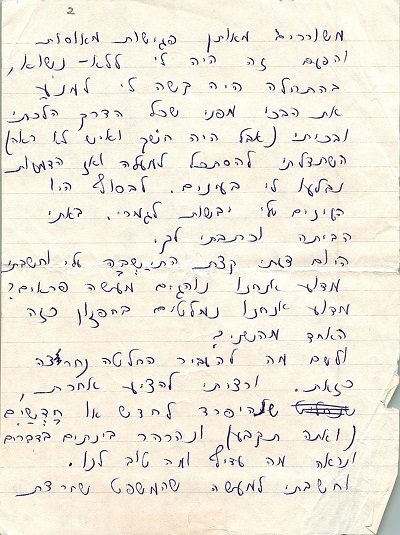 2
משוררים מאותן פגישות מאוסות
והפעם זה היה לי ללא-נשוא,
בהתחלה היה קשה לי למנוע
את הבכי מפני שכל הדרך הלכתי
ובכיתי (אבל היה חשך ואיש לא ראה)
השתדלתי להסתכל למעלה ואז הדמעות
נבלעו לי בעינים. לבסוף היו
העינים שלי יבשות לגמרי. באתי
הביתה וכתבתי לך.
היום דעתי קצת התישבה עלי וחשבתי
מדוע אנחנו נוהגים מעשה פראים?
מדוע אנחנו נמלטים בחפזון כזה
האחד מהשני?
ולשם מה להעביר החלטה נחרצה
כזאת. ורציתי להציע אחרת,
שהיפרד לחדש או חֲדָשַׁיִם
(ואתה תקבע) ונהרהר בינתים בדברים
ונראה מה עדיף ומה טוב לנו.
וחשבתי למעשה שהמשפט נחרצת